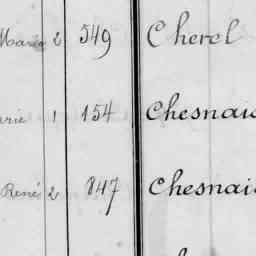 Marie 2 549 Cherel
arie 1 154 Chesnais
René 2 847 Chesnais